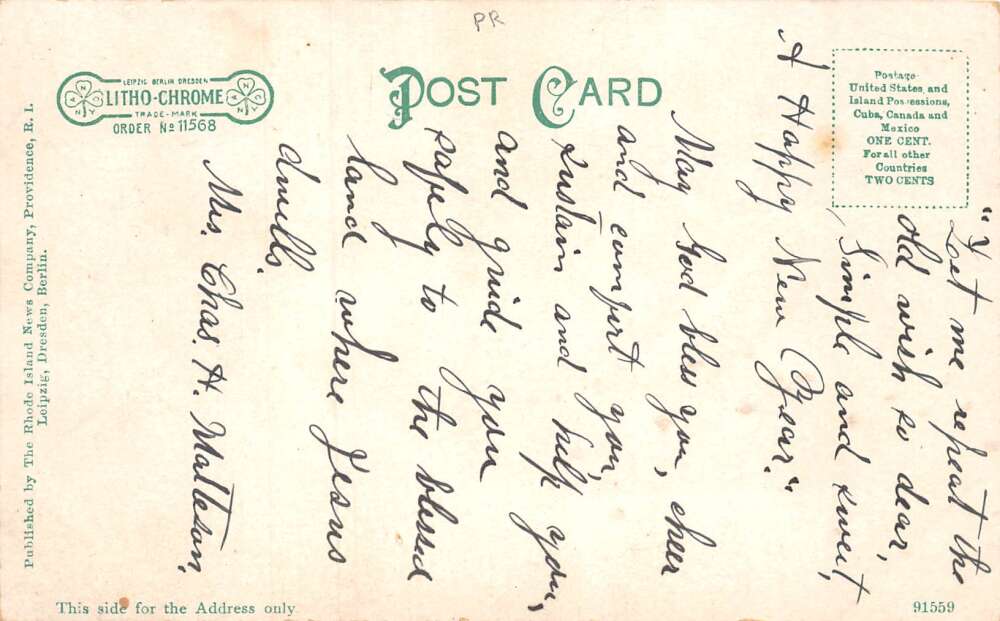 PR
LEIPZIG BERLIN DRESDEN
LITHO-CHROME
TRADE-MARK
ORDER No 11568
POST CARD
Postage
United States and
Island Possessions,
Cuba, Canada and
Mexico
ONE CENT.
For all other
Countries
TWO CENTS
"Let me repeat the
old wish so dear,
Simple and sweet,
A Happy New Year."
May God bless you, cheer
and comfort you,
sustain and help you,
and guide you
safely to the blessed
land where Jesus
dwells.
Mrs. Chas. H. Matteson.
Published by The Rhode Island News Company, Providence, R. I.
Leipzig, Dresden, Berlin.
This side for the Address only
91559